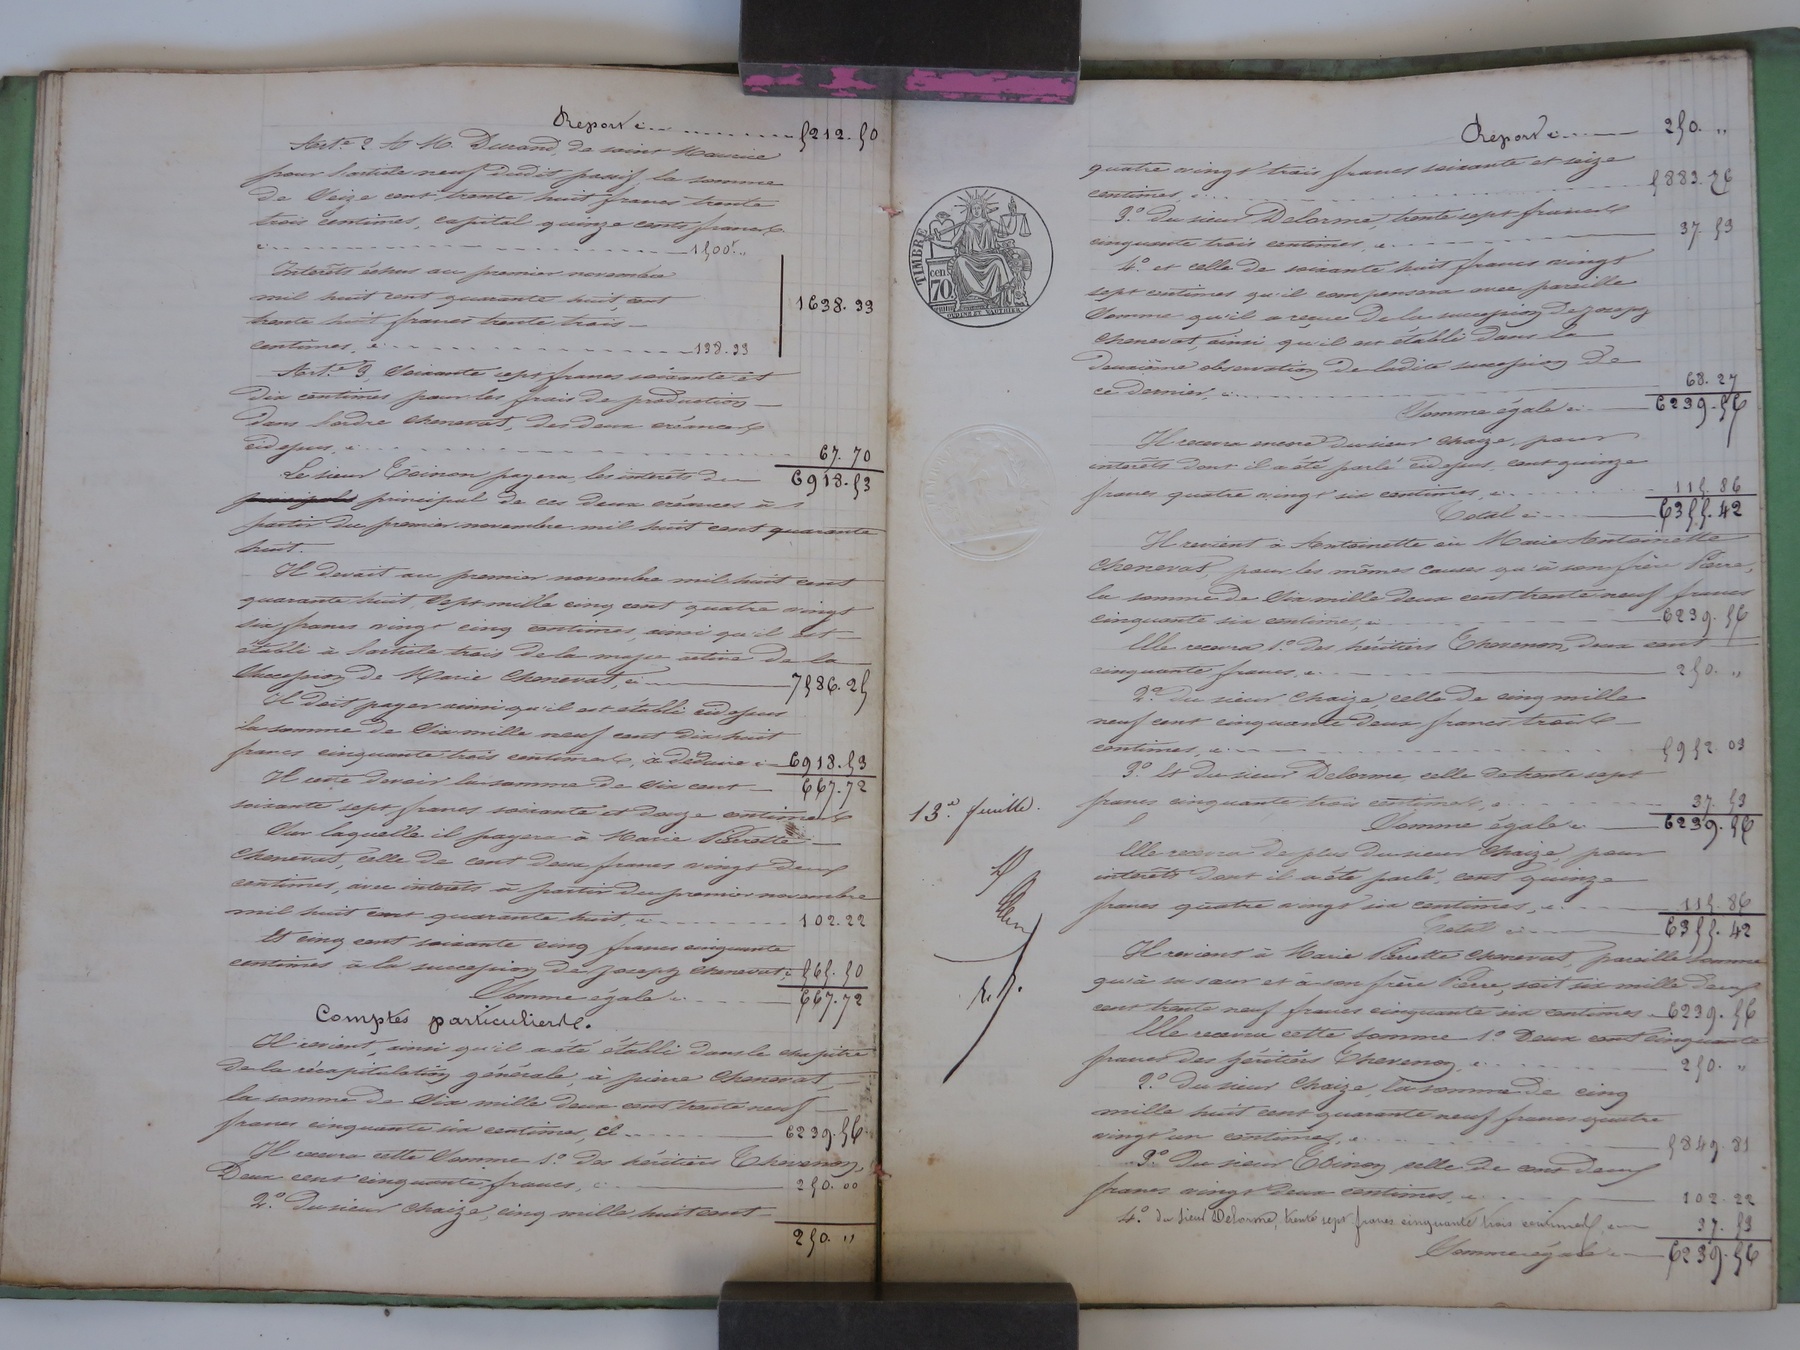 Report ci 5212.50
Art.e 2. A M. Durand, de saint Maurice
pour l'article neuf dudit passif, la somme
de Seize cent trente huit francs trente
trois centimes, capital quinze cents francs
ci 1500f. "
Intérêts échus au premier novembre
mil huit cent quarante huit, cent
trente huit francs trente trois 1638.33
centimes, ci 138.33
Art.e 3, Soixante sept francs soixante et
dix centimes pour les frais de production
dans l'ordre Chenevat, des deux créances
cidessus, ci 67.70
Le sieur Thinon payera les intérêts du 6918.53
principal de ces deux créances à
partir du premier novembre mil huit cent quarante
huit.
Il devait au premier novembre mil huit cent
quarante huit, Sept mille cinq cent quatre vingt
six francs vingt cinq centimes, ainsi qu'il est
établi à l'article trois de la masse active de la
Succession de Marie Chenevat, ci 7586.25
Il doit payer ainsi qu'il est établi cidessus
la somme de Six mille neuf cent dix huit
francs cinquante trois centimes, à déduire ci 6918.53
Il reste devoir la somme de Six cent 667.72
soixante sept francs soixante et douze centimes
Sur laquelle il payera à Marie Pierrette
Chenevat, celle de cent deux francs vingt deux
centimes, avec intérêts à partir du premier novembre
mil huit cent quarante huit, ci 102.22
Et cinq cent soixante cinq francs cinquante
centimes à la succession de Joseph Chenevat ci 565.50
Somme égale ci 667.72
Comptes particuliers.
Il revient, ainsi qu'il a été établi dans le chapitre
de la récapitulation générale, à pierre Chenevat,
la somme de Six mille deux cent trente neuf
francs cinquante six centimes, ci 6239.56
Il recevra cette Somme 1.o des héritiers Thevenon,
Deux cent cinquante francs, ci 250.00
2.o Du sieur Chaize, cinq mille huit cent
250. "
Report ci 250. "
quatre vingt trois francs soixante et seize
centimes, ci 5883.76
3.o Du sieur Delorme, trente sept francs
cinquante trois centimes, ci 37.53
4.o et celle de soixante huit francs vingt
sept centimes qu'il compensera avec pareille
Somme qu'il a reçue de la succession de Joseph
Chenevat, ainsi qu'il est établi dans la
deuxième observation de ladite succession de
ce dernier, ci 68.27
Somme égale ci 6239.56
Il recevra encore du sieur Chaize, pour
intérêts dont il a été parlé cidessus, cent quinze
francs quatre vingt six centimes, ci 115.86
Total ci 6355.42
Il revient à Antoinette ou Marie Antoinette
Chenevat, pour les mêmes causes qu'à son frère Pierre,
la somme de Six mille deux cent trente neuf francs
cinquante six centimes, ci 6239.56
Elle recevra 1.o des héritiers Thevenon, deux cent
cinquante francs, ci 250. "
2.o du sieur Chaize, celle de cinq mille
neuf cent cinquante deux francs trois
centimes, ci 5952.03
3.o Et du sieur Delorme, celle de trente sept
francs cinquante trois centimes, ci 37.53
Somme égale ci 6239.56
Elle recevra de plus du sieur Chaize, pour
intérêts dont il a été parlé, cent quinze
francs quatre vingt six centimes, ci 115.86
Total ci 6355.42
Il revient à Marie Pierrette Chenevat, pareille somme
qu'à sa sœur et à son frère Pierre, soit six mille deux
cent trente neuf francs cinquante six centimes 6239.56
Elle recevra cette somme 1.o Deux cent cinquante
francs des héritiers Thevenon, ci 250. "
2.o du sieur Chaize, la somme de cinq
mille huit cent quarante neuf francs quatre
vingt un centimes, ci 5849.81
3.o du sieur Thinon celle de cent deux
francs vingt deux centimes, ci 102.22
4.o du sieur Delorme, trente sept francs cinquante trois centimes, ci 37.53
Somme égale ci 6239.56
TIMBRE
cen
70
OUDINE ET VAUTHIER
13.e feuille.